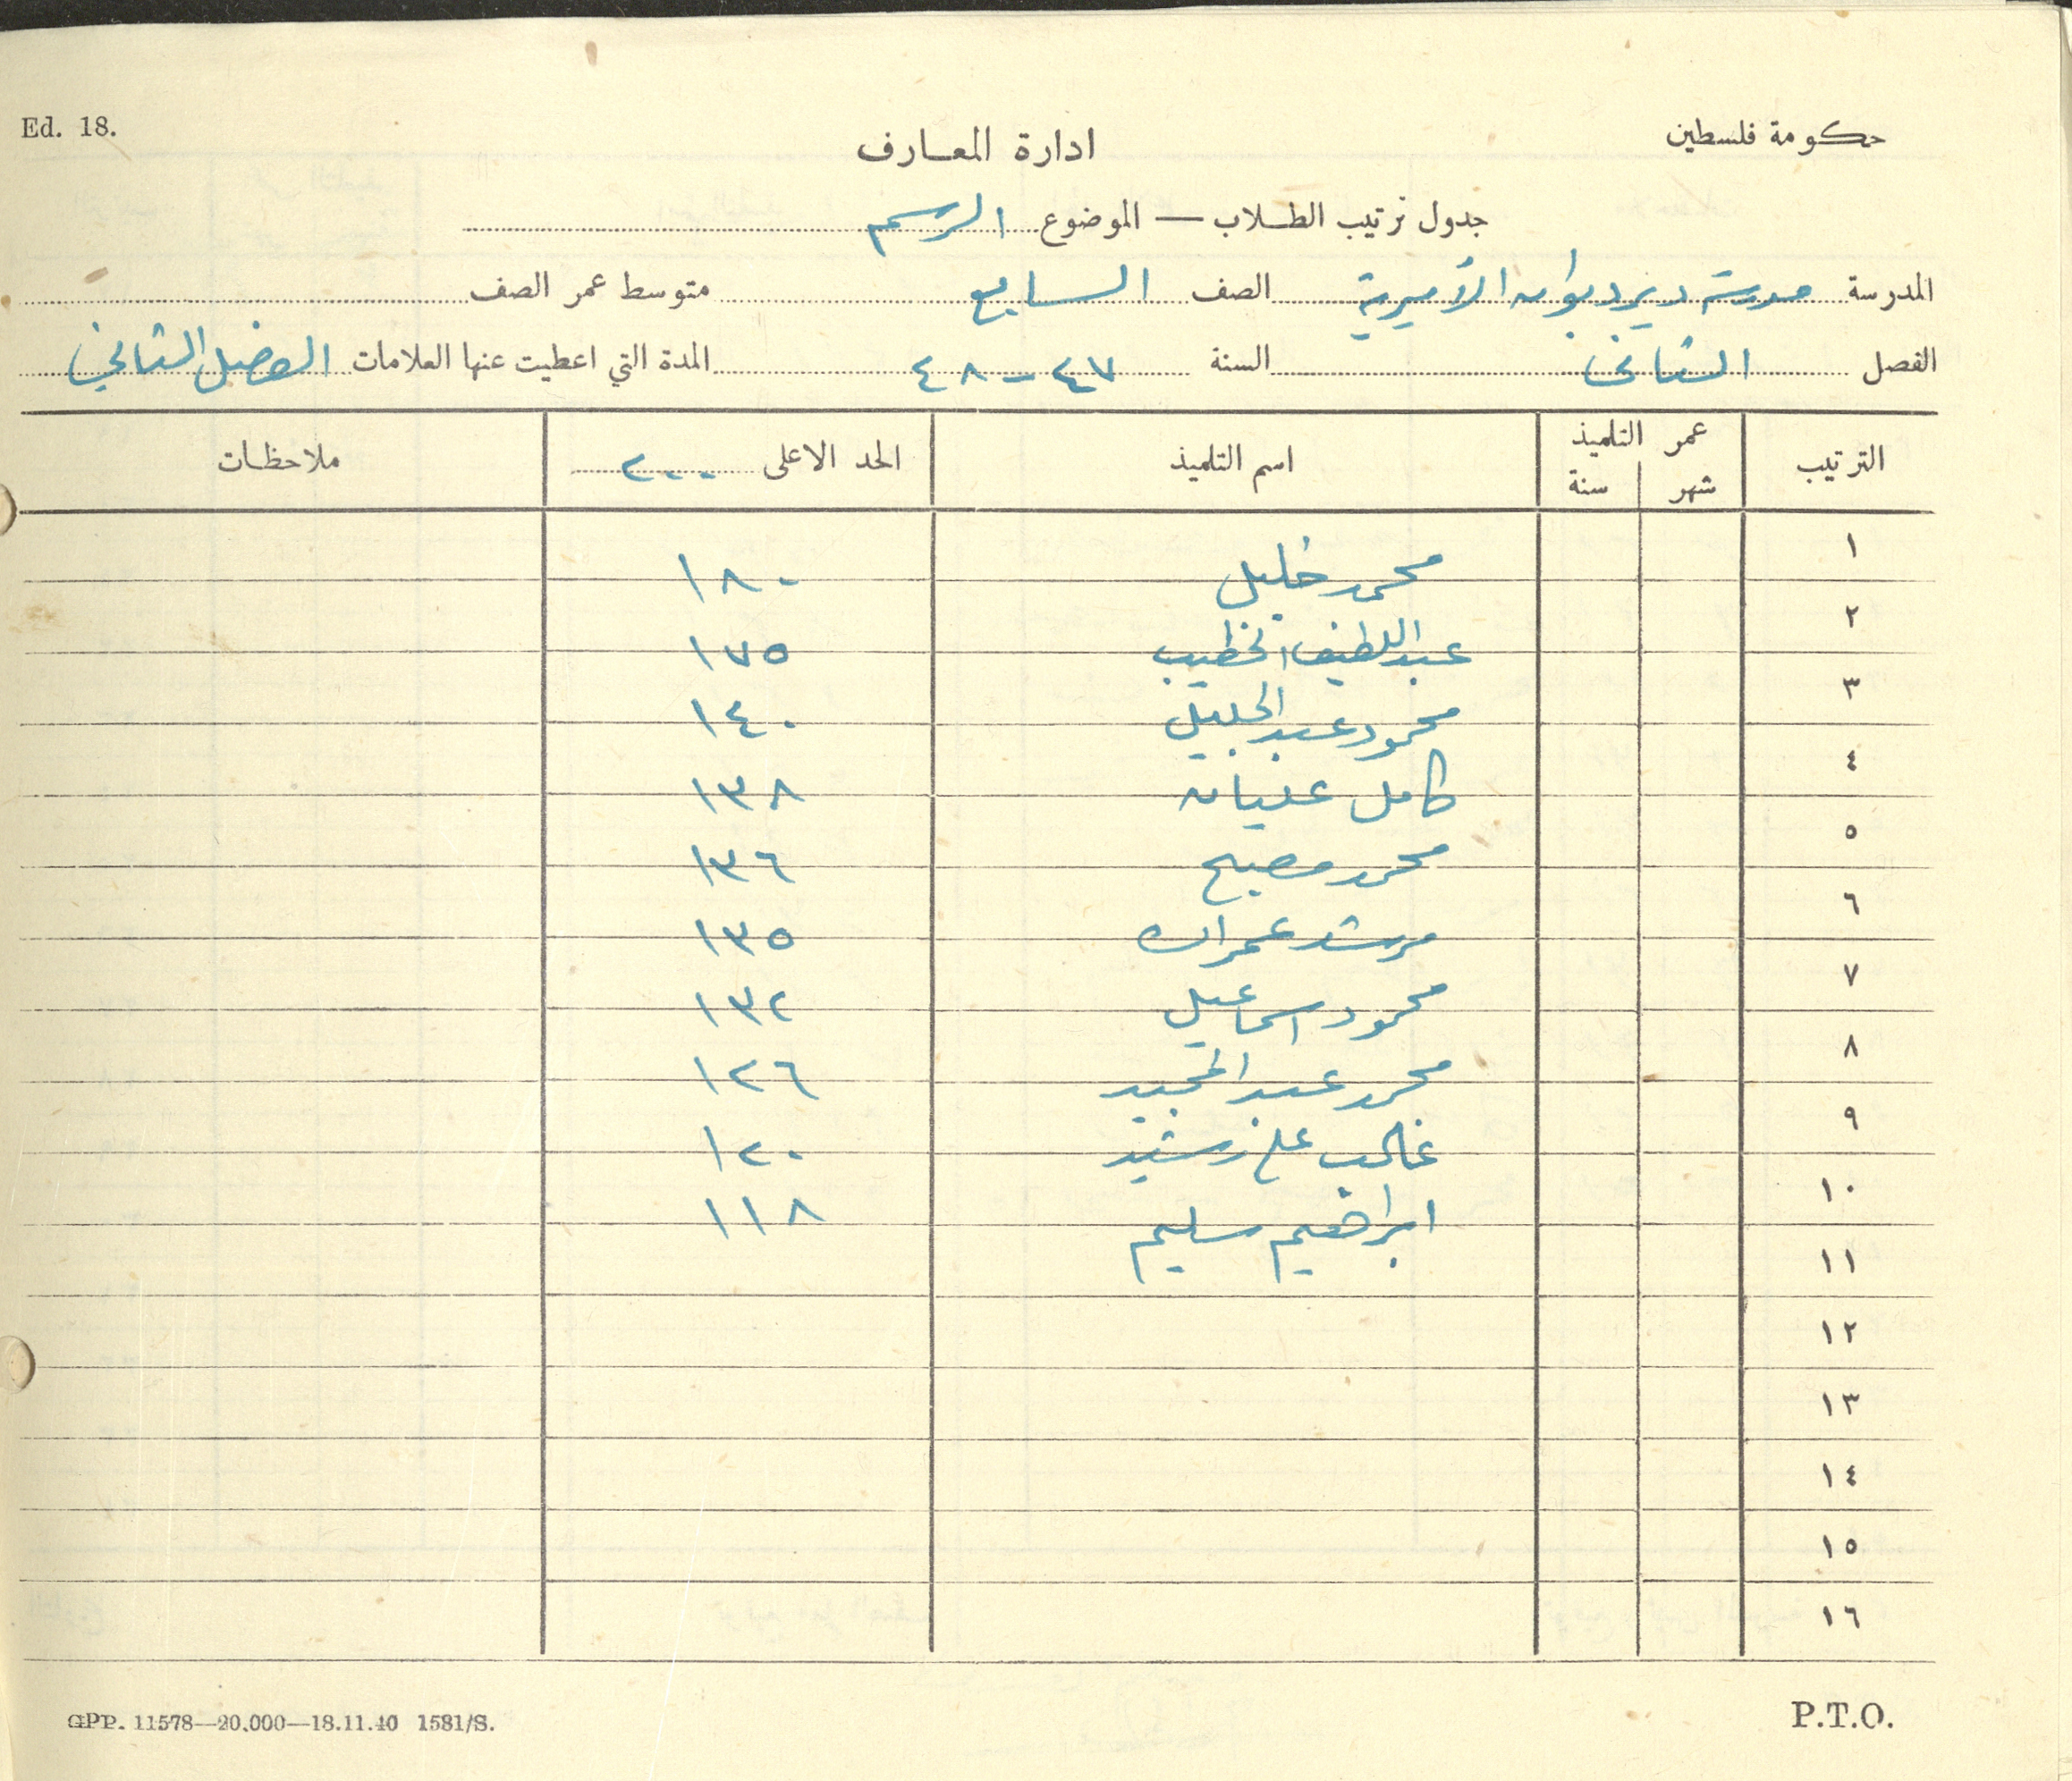 Ed. 18.
حكومة فلسطين
ادارة المعارف
جدول ترتيب الطلاب — الموضوع الرسم
المدرسة مدرسة دير ديوان الأميرية الصف السابع متوسط عمر الصف
الفصل الثاني السنة ٤٧ - ٤٨ المدة التي اعطيت عنها العلامات الفصل الثاني
الترتيب عمر التلميذ شهر سنة اسم التلميذ الحد الاعلى ٢٠٠ ملاحظات
١ محمد خليل ١٨٠
٢ عبد اللطيف الخطيب ١٧٥
٣ محمود عبد الجليل ١٤٠
٤ كامل عليان ١٣٨
٥ محمد مصبح ١٣٦
٦ مرشد عمران ١٣٥
٧ محمود اسماعيل ١٣٢
٨ محمد عبد المجيد ١٢٦
٩ غالب علي رشيد ١٢٠
١٠ ابراهيم سليم ١١٨
١١
١٢
١٣
١٤
١٥
١٦
GPP. 11578—20.000—18.11.40 1581/S.
P.T.O.